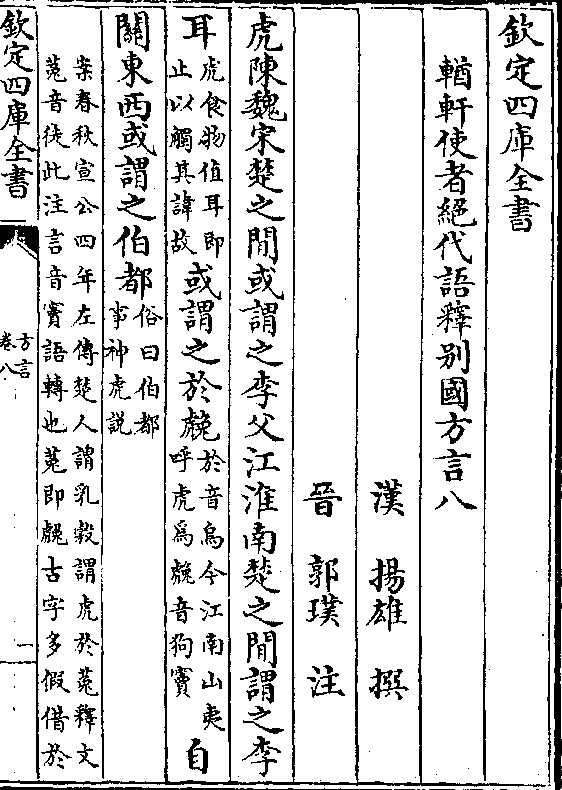 欽定四庫全書
輶軒使者絕代語釋别國方言八
漢 揚雄 撰
晉 郭璞 注
虎陳魏宋楚之間或謂之李父江淮南楚之間謂之李
耳虎食物值耳即止以觸其諱故或謂之於䖘於音烏今江南山夷呼虎爲䖘音狗竇自
關東西或謂之伯都俗曰伯都事神虎説
案春秋宣公四年左傳楚人謂乳榖謂虎於菟釋文
菟音徒此注言音竇語轉也菟即䖘古字多假借於
欽定四庫全書
方言
卷八
一